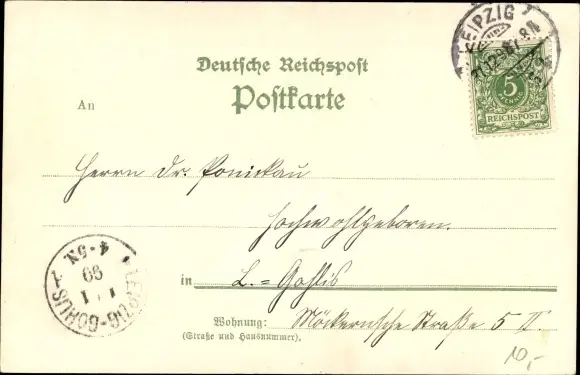 LEIPZIG
5
PFENNIG
REICHSPOST
Deutsche Reichspost
Postkarte
An
Herrn Dr. Ponickau
Hochwohlgeboren.
in L.=Gohlis
Wohnung: Möckernsche Straße 5 II.
(Straße und Hausnummer).
LEIPZIG-GOHLIS
1 1
99
4-5N.
10,-